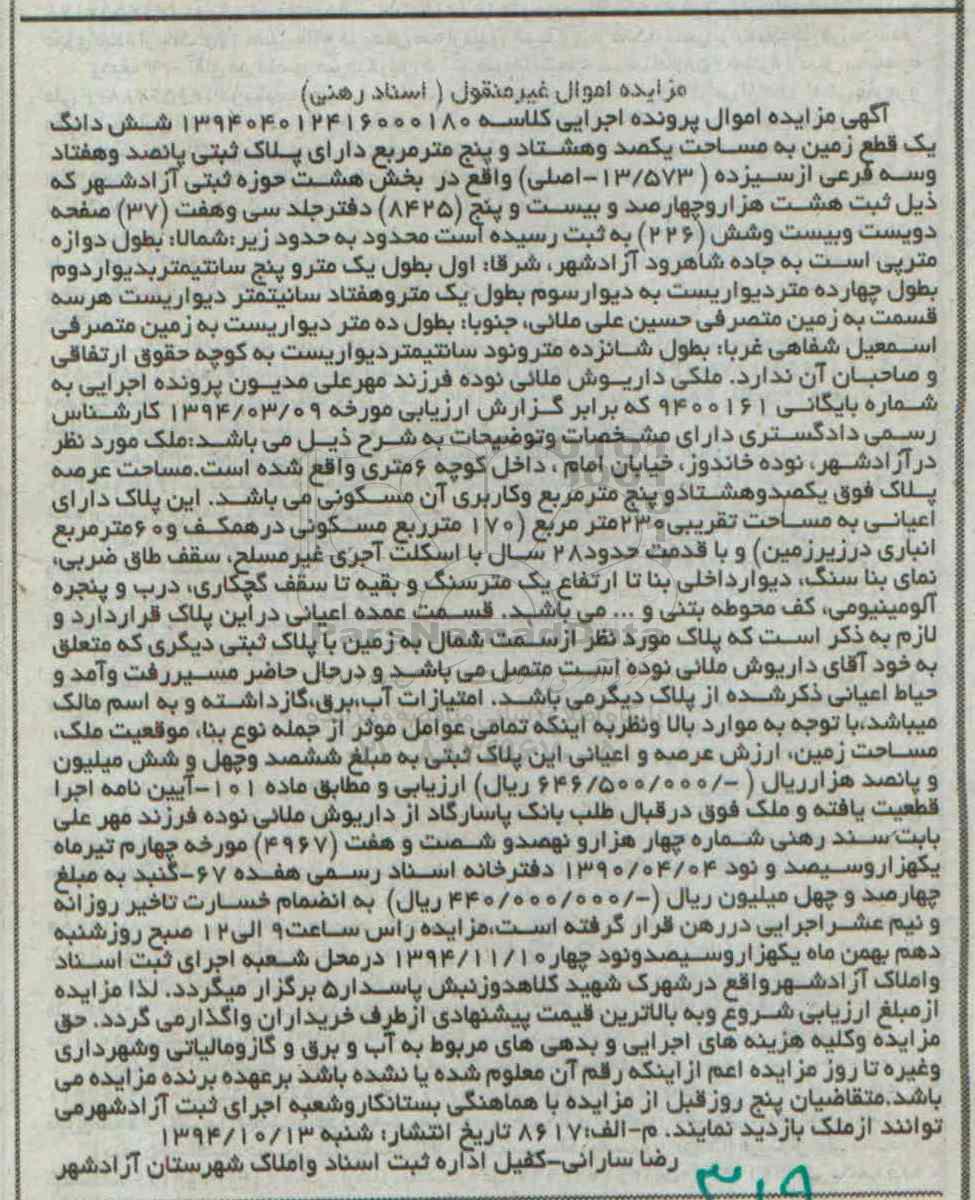 مزایده اموال غیرمنقول ( اسناد رهنی)
آگهی مزایده اموال پرونده اجرایی کلاسه ۱۳۹۴۰۴۰۱۲۴۱۶۰۰۰۱۸۰ شش دانگ
یک قطع زمین به مساحت یکصد وهشتاد و پنج مترمربع دارای پلاک ثبتی پانصد وهفتاد
وسه فرعی ازسیزده ( ۱۳/۵۷۳-اصلی) واقع در بخش هشت حوزه ثبتی آزادشهر که
ذیل ثبت هشت هزاروچهارصد و بیست و پنج (۸۴۲۵) دفترجلد سی وهفت (۳۷) صفحه
دویست وبیست وشش (۲۲۶) به ثبت رسیده است محدود به حدود زیر:شمالا: بطول دوازه
مترپی است به جاده شاهرود آزادشهر، شرقا: اول بطول یک مترو پنج سانتیمتربدیواردوم
بطول چهارده متردیواریست به دیوارسوم بطول یک متروهفتاد سانیتمتر دیواریست هرسه
قسمت به زمین متصرفی حسین علی ملائی، جنوبا: بطول ده متر دیواریست به زمین متصرفی
اسمعیل شفاهی غربا: بطول شانزده مترونود سانتیمتردیواریست به کوچه حقوق ارتفاقی
و صاحبان آن ندارد. ملکی داریوش ملائی نوده فرزند مهرعلی مدیون پرونده اجرایی به
شماره بایگانی ۹۴۰۰۱۶۱ که برابر گزارش ارزیابی مورخه ۱۳۹۴/۰۳/۰۹ کارشناس
رسمی دادگستری دارای مشخصات وتوضیحات به شرح ذیل می باشد:ملک مورد نظر
درآزادشهر، نوده خاندوز، خیابان امام ، داخل کوچه ۶متری واقع شده است.مساحت عرصه
پلاک فوق یکصدوهشتادو پنج مترمربع وکاربری آن مسکونی می باشد. این پلاک دارای
اعیانی به مساحت تقریبی۲۳۰متر مربع (۱۷۰ مترربع مسکونی درهمکف و۶۰مترمربع
انباری درزیرزمین) و با قدمت حدود۲۸ سال با اسکلت آجری غیرمسلح، سقف طاق ضربی،
نمای بنا سنگ، دیوارداخلی بنا تا ارتفاع یک مترسنگ و بقیه تا سقف گچکاری، درب و پنجره
آلومینیومی، کف محوطه بتنی و ... می باشد. قسمت عمده اعیانی دراین پلاک قراردارد و
لازم به ذکر است که پلاک مورد نظر ازسمت شمال به زمین با پلاک ثبتی دیگری که متعلق
به خود آقای داریوش ملائی نوده است متصل می باشد و درحال حاضر مسیررفت وآمد و
حیاط اعیانی ذکرشده از پلاک دیگرمی باشد. امتیازات آب،برق،گازداشته و به اسم مالک
میباشد،با توجه به موارد بالا ونظربه اینکه تمامی عوامل موثر از جمله نوع بنا، موقعیت ملک،
مساحت زمین، ارزش عرصه و اعیانی این پلاک ثبتی به مبلغ ششصد وچهل و شش میلیون
و پانصد هزارریال ( -/۶۴۶/۵۰۰/۰۰۰ ریال) ارزیابی و مطابق ماده ۱۰۱-آیین نامه اجرا
قطعیت یافته و ملک فوق درقبال طلب بانک پاسارگاد از داریوش ملائی نوده فرزند مهر علی
بابت سند رهنی شماره چهار هزارو نهصدو شصت و هفت (۴۹۶۷) مورخه چهارم تیرماه
یکهزاروسیصد و نود ۱۳۹۰/۰۴/۰۴ دفترخانه اسناد رسمی هفده ۶۷-گنبد به مبلغ
چهارصد و چهل میلیون ریال (-/۴۴۰/۰۰۰/۰۰۰ ریال) به انضمام خسارت تاخیر روزانه
و نیم عشراجرایی دررهن قرار گرفته است،مزایده راس ساعت۹ الی۱۲ صبح روزشنبه
دهم بهمن ماه یکهزاروسیصدونود چهار۱۳۹۴/۱۱/۱۰ درمحل شعبه اجرای ثبت اسناد
واملاک آزادشهرواقع درشهرک شهید کلاهدوزنبش پاسدار۵ برگزار میگردد. لذا مزایده
ازمبلغ ارزیابی شروع وبه بالاترین قیمت پیشنهادی ازطرف خریداران واگذارمی گردد. حق
مزایده وکلیه هزینه های اجرایی و بدهی های مربوط به آب و برق و گازومالیاتی وشهرداری
وغیره تا روز مزایده اعم ازاینکه رقم آن معلوم شده یا نشده باشد برعهده برنده مزایده می
باشد.متقاضیان پنج روزقبل از مزایده با هماهنگی بستانکاروشعبه اجرای ثبت آزادشهرمی
توانند ازملک بازدید نمایند. م-الف:۸۶۱۷ تاریخ انتشار: شنبه ۱۳۹۴/۱۰/۱۳
رضا سارانی-کفیل اداره ثبت اسناد واملاک شهرستان آزادشهر
۳۱۹